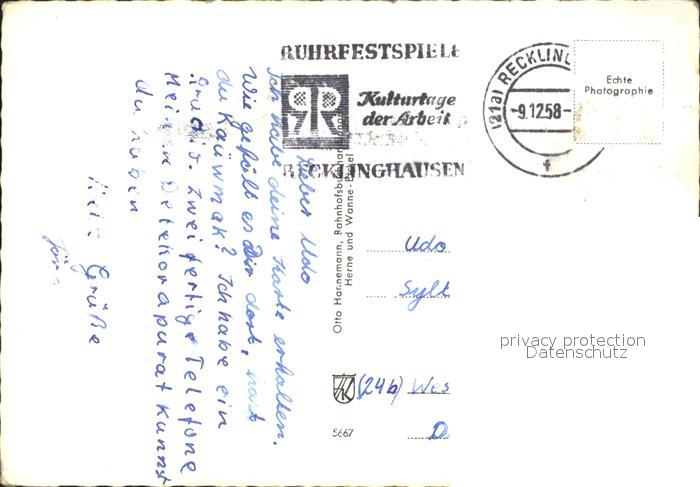 RUHRFESTSPIELE
Kulturtage
der Arbeit
RECKLINGHAUSEN
(21a) RECKLING
-9.12.58-
f
Echte
Photographie
Lieber Udo
Ich habe deine Karte erhalten.
Wie gefällt es Dir dort, hast
du Kauwmak? Ich habe ein
Radio. Zwei fertige Telefone
Meinen Detekorapurat kannst
du haben
Viele Grüße
Jörn
Otto Hannemann, Bahnhofsbuchhandlung
Herne und Wanne-Eickel
Udo
Sylt
(24b) Wes
D
5667
privacy protection
Datenschutz